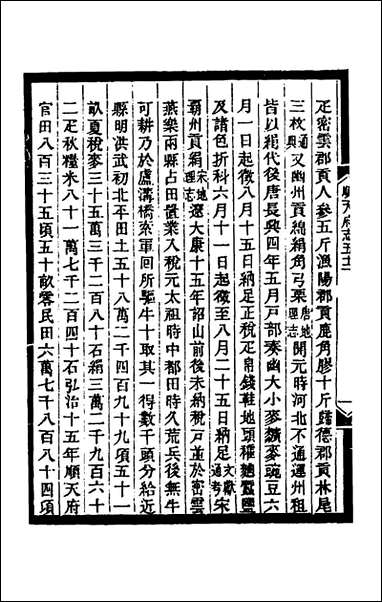 疋密雲郡貢人參五斤漁陽郡貢鹿角膠十斤歸德郡貢林尾
三枚通典又幽州貢綿絹角弓栗唐地理志開元時河北不通運州租
皆以絹代後唐長興四年五月戸部奏幽大小麥䵃麥豌豆六
月一日起徵八月十五日納足正稅疋帛錢鞋地頭榷麯蠶鹽
及諸色折科六月十一日起徵至八月二十五日納足文獻通考宋
覇州貢絹宋地理志遼太康十五年詔山前後未納稅戸並於密雲
燕樂兩縣占田置業入稅元太祖時中都田時久荒兵後無牛
可耕乃於盧溝橋索軍回所驅牛十取其一得數千頭分給近
縣明洪武初北平田土五十八萬二千四百九十九項五十一
畝夏稅麥三十五萬三千二百八十石絹三萬二千九百六十
二疋秋糧米八十一萬七千二百四十石弘治十五年順天府
官田八百三十五頃五十畝零民田六萬七千八百八十四項
順天府志五十二